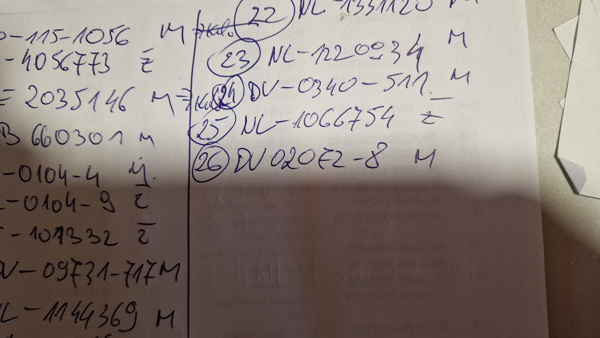 -115-1056 M
-4056773 ž
2035146 M
B 660301 M
-0104-4 M
-0104-9 ž
DV-09731-717M
NL-1144369 M
22 NL-1331120 M
23 NL-1220934 M
24 DV-0340-511. M
25 NL-1066754 ž
26 DV020E2-8 M